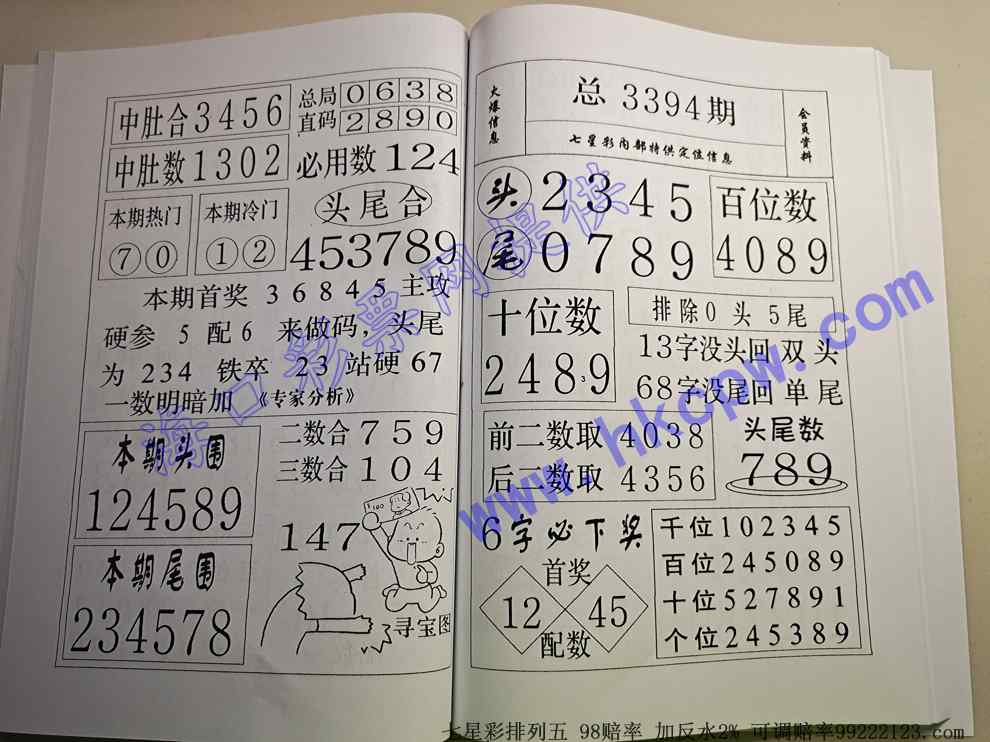 中肚合3456
总局0638
直码2890
中肚数1302
必用数124
本期热门
⑦⓪
本期冷门
①②
头尾合
453789
本期首奖 3 6 8 4 5 主攻
硬参 5 配 6 来做码，头尾
为 234 铁卒 23 站硬 67
一数明暗加 《专家分析》
本期头围
124589
二数合 7 5 9
三数合 1 0 4
本期尾围
234578
147
100
寻宝图
火爆信息
总 3394期
七星彩内部特供定位信息
会员资料
头 2345
尾 0789
百位数
4089
十位数
2489
3
排除0 头 5尾
13字没头回 双 头
68字没尾回 单 尾
前二数取 4038
后二数取 4356
头尾数
789
6字必下奖
首奖
12 45
配数
千位102345
百位245089
十位527891
个位245389
海口彩票网提供
www.hkcpw.com
七星彩排列五 98赔率 加反水2% 可调赔率99222123.com